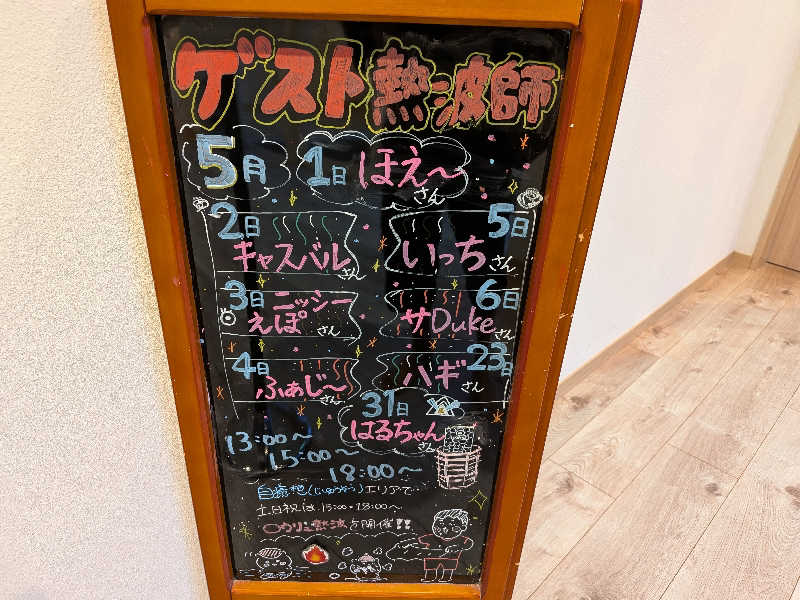 ゲスト熱波師
5月 1日 ほえ〜さん
2日 キャスバルさん
5日 いっちさん
3日 ニッシー えぽさん
6日 サDukeさん
4日 ふぁじ〜さん
23日 ハギさん
31日 はるちゃんさん
13:00〜
15:00〜
18:00〜
エリアで
土日祝は15:00・18:00〜
熱波も開催!!